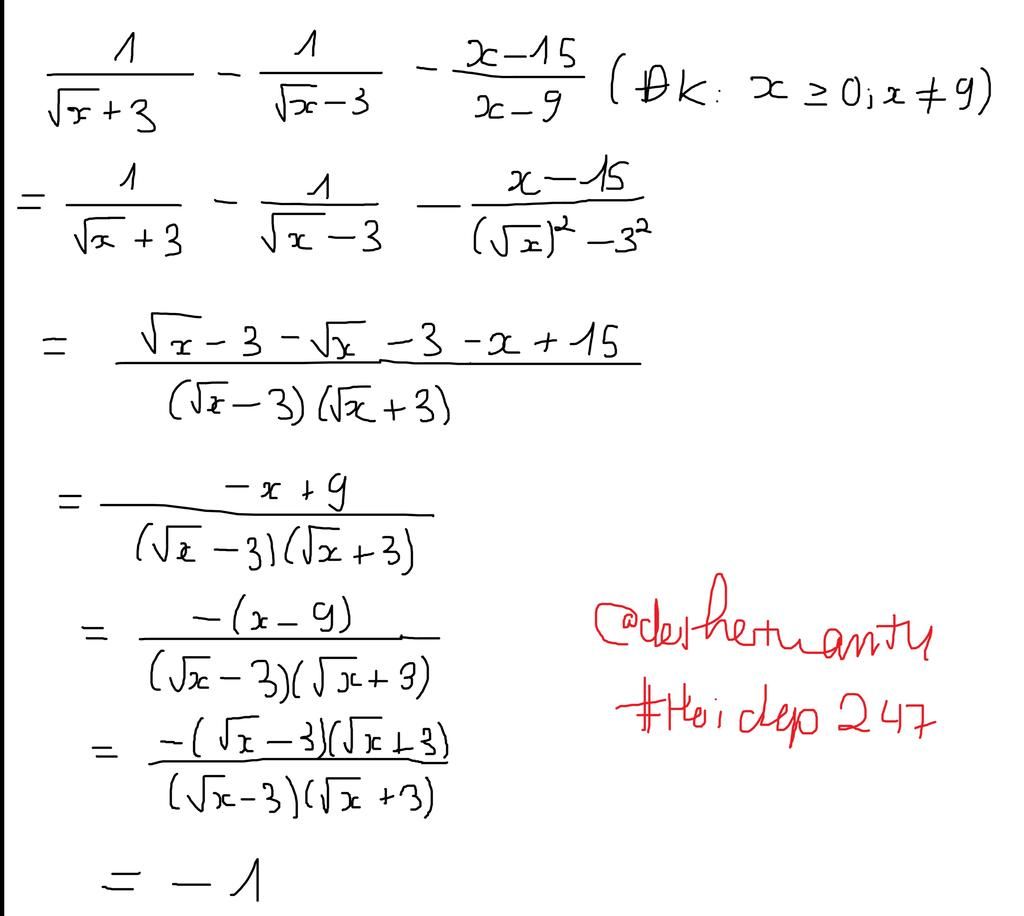 1/(√x + 3) - 1/(√x - 3) - (x - 15)/(x - 9) (ĐK: x ≥ 0; x ≠ 9)
= 1/(√x + 3) - 1/(√x - 3) - (x - 15)/((√x)² - 3²)
= (√x - 3 - √x - 3 - x + 15)/((√x - 3)(√x + 3))
= (-x + 9)/((√x - 3)(√x + 3))
= (-(x - 9))/((√x - 3)(√x + 3))
= (-(√x - 3)(√x + 3))/((√x - 3)(√x + 3))
= -1
#Hoidap247